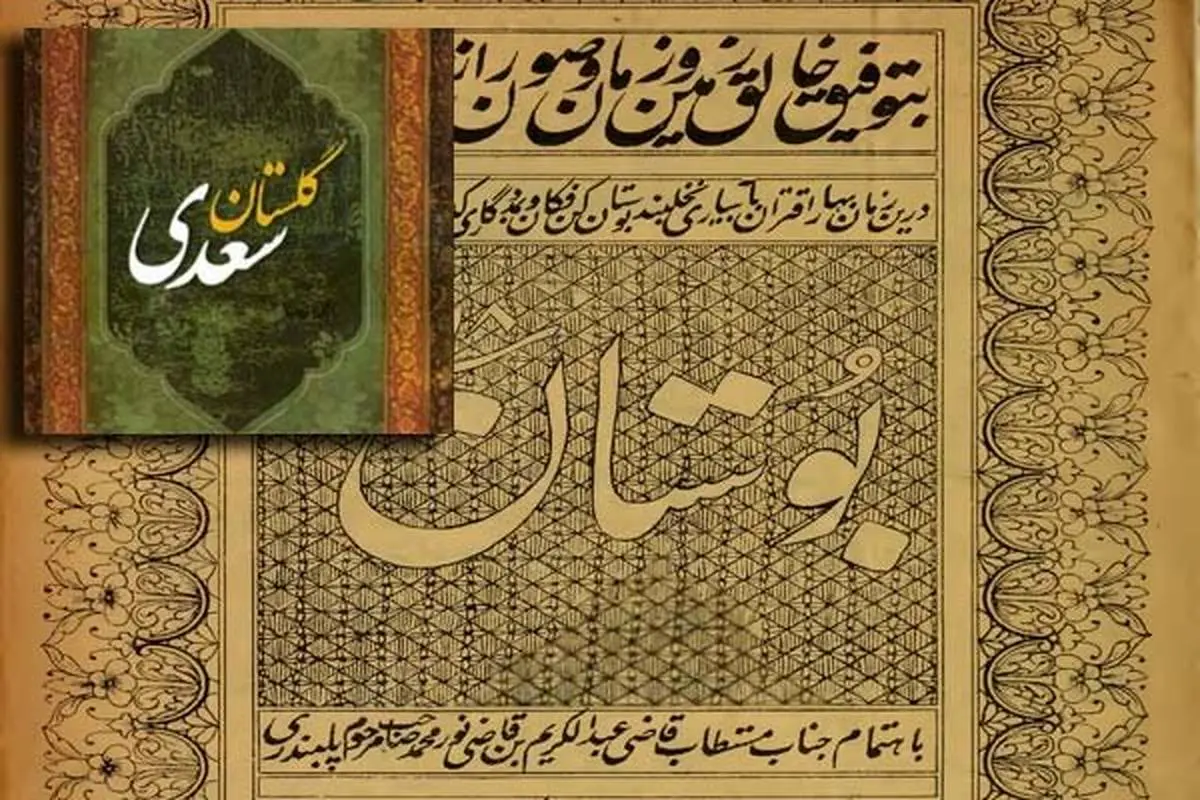 گلستان
سعدی
بتوفیق خالق زمین و زمان و صور
درین زمان بهار اقتران بآبیاری نخلبند بوستان کن فکان و
بوستان
باهتمام جناب مستطاب قاضی عبدالکریم بن قاضی نور محمد صاحب مرحوم پلبندری